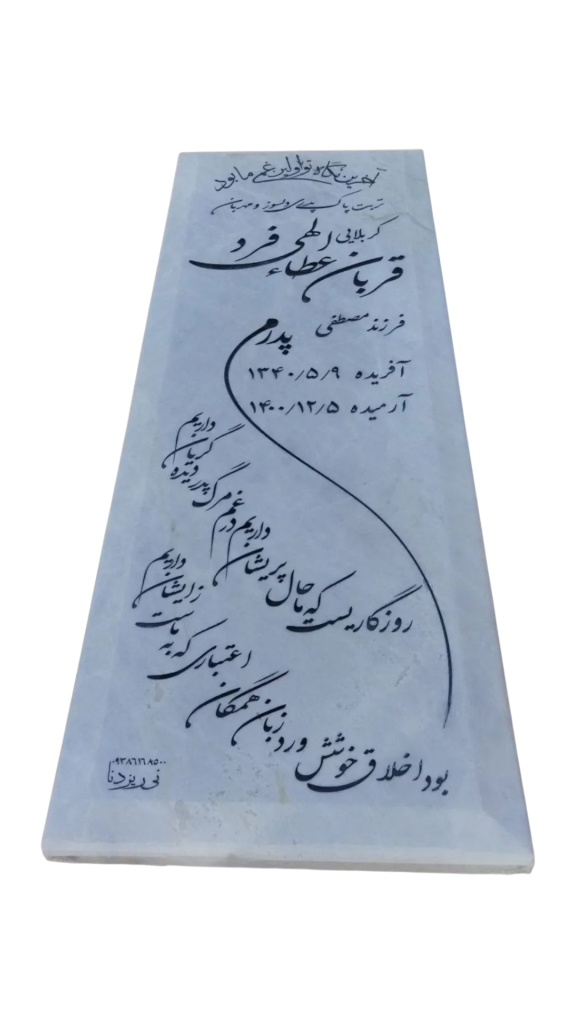 آخرین نگاه تو اولین غم ما بود
تربت پاک پدری دلسوز و مهربان
کربلایی
قربان عطاء الهی فرد
فرزند مصطفی
پدرم
آفریده ۱۳۴۰/۵/۹
آرمیده ۱۴۰۰/۱۲/۵
روزگاریست که ما حال پریشان داریم
در غم مرگ پدر دیده گریان داریم
بود اخلاق خوشش ورد زبان همگان
اعتباری که به ماست زایشان داریم
نی ریز دنا